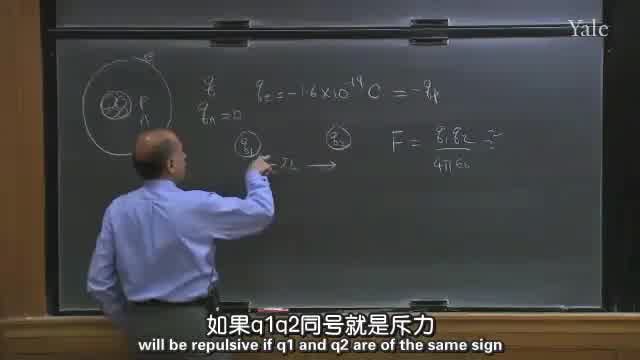 Yale
e
P
n
q q_e = -1.6 × 10^-19 C = -q_p
q_n = 0
q_1 q_2 F = q_1 q_2
4πε_0
如果q1q2同号就是斥力
will be repulsive if q1 and q2 are of the same sign